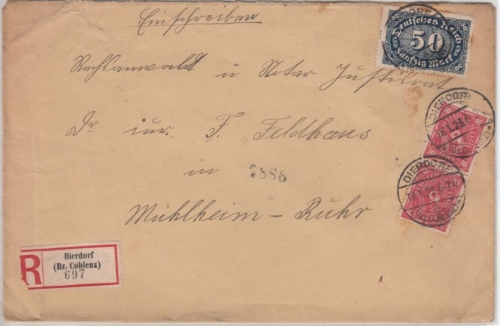 Einschreiben
Deutsches Reich
50
Fünfzig Mark
Rechtsanwalt u Notar Justizrat
Dr iur. F. Feldhaus
in
7886
Mühlheim-Ruhr
DIERDORF
DIERDORF
R
Dierdorf
(Bz. Coblenz)
697